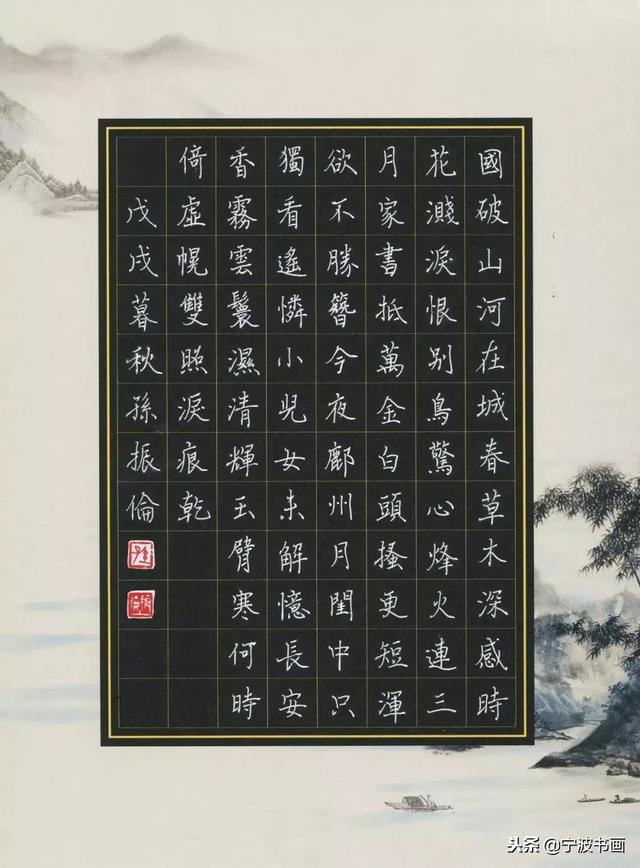 國破山河在城春草木深感時
花濺淚恨別鳥驚心烽火連三
月家書抵萬金白頭搔更短渾
欲不勝簪今夜鄜州月閨中只
獨看遙憐小兒女未解憶長安
香霧雲鬟濕清輝玉臂寒何時
倚虛幌雙照淚痕乾
戊戌暮秋孫振倫
头条@宁波书画